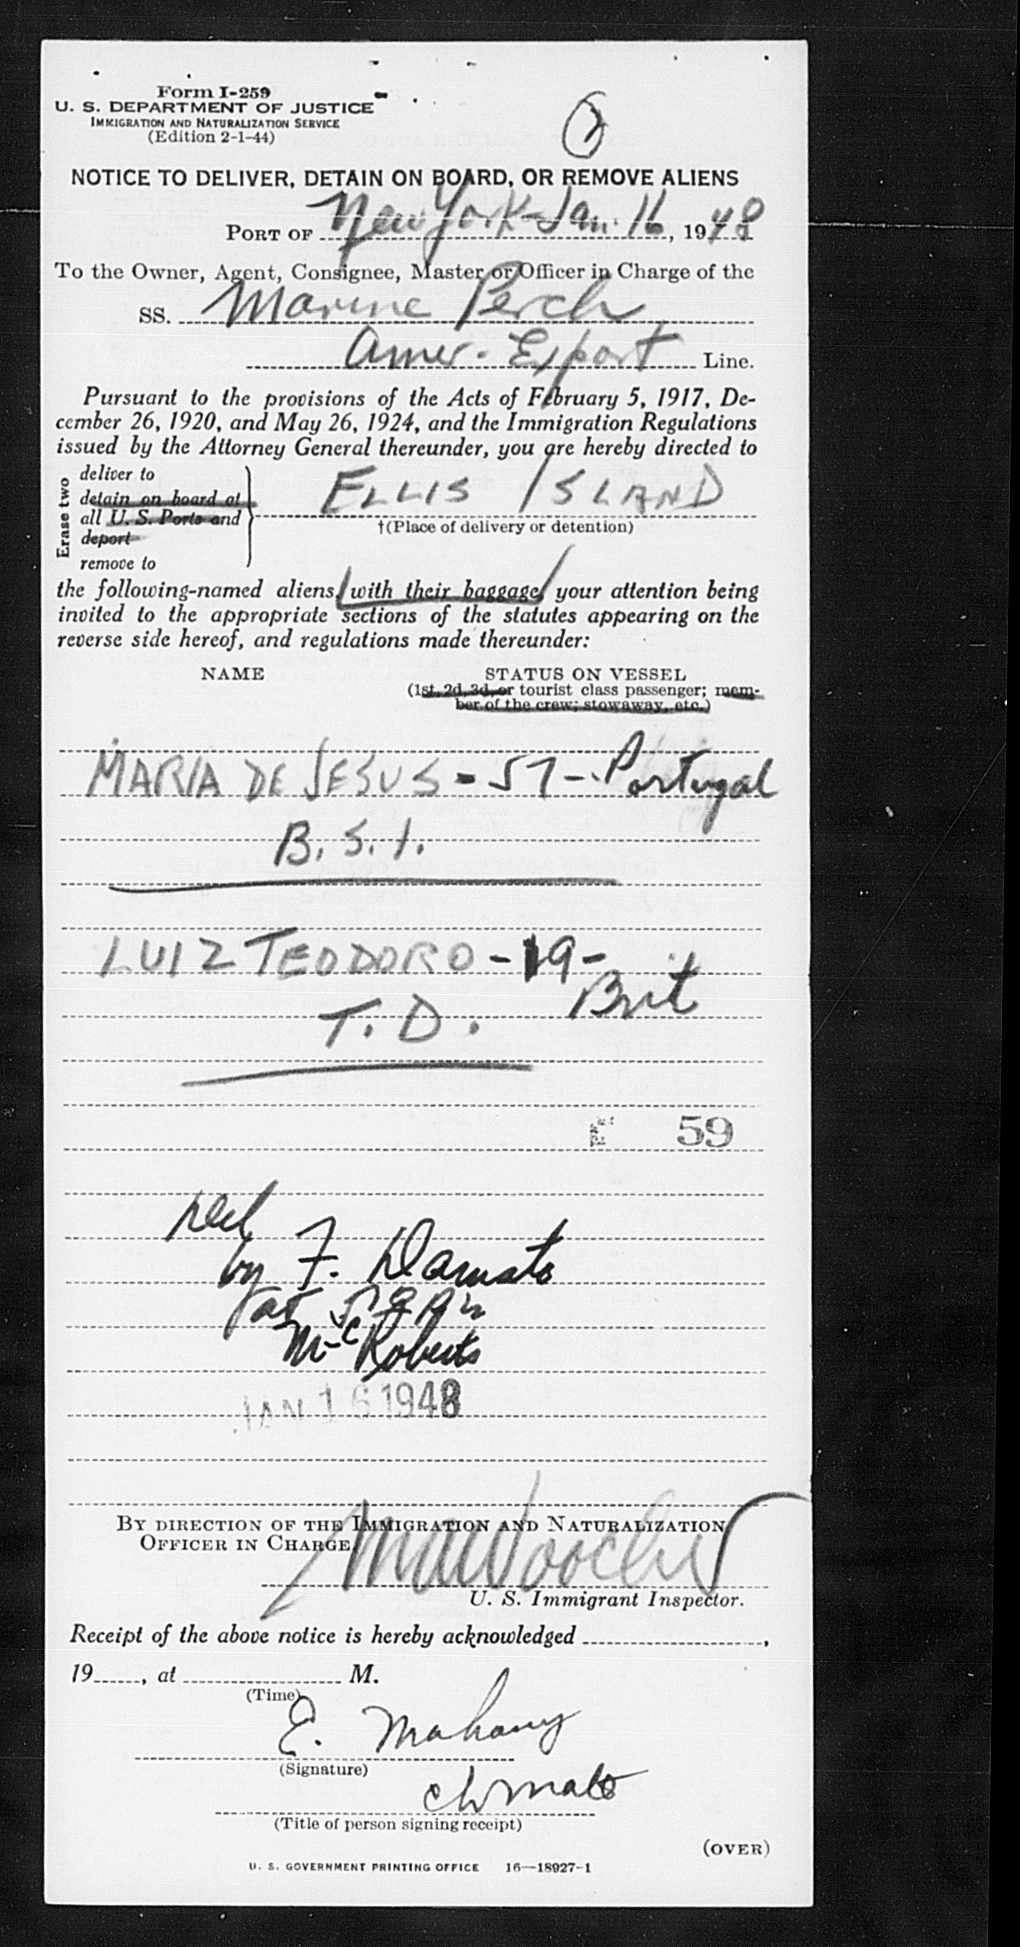 Form I-259
U. S. DEPARTMENT OF JUSTICE
IMMIGRATION AND NATURALIZATION SERVICE
(Edition 2-1-44)
2
NOTICE TO DELIVER, DETAIN ON BOARD, OR REMOVE ALIENS
PORT OF New York - Jan. 16, 1948
To the Owner, Agent, Consignee, Master or Officer in Charge of the
SS. Marine Perch
Amer. Export Line.
Pursuant to the provisions of the Acts of February 5, 1917, De-
cember 26, 1920, and May 26, 1924, and the Immigration Regulations
issued by the Attorney General thereunder, you are hereby directed to
Erase two
deliver to
detain on board at
all U. S. Ports and
deport
remove to
ELLIS ISLAND
†(Place of delivery or detention)
the following-named aliens, with their baggage, your attention being
invited to the appropriate sections of the statutes appearing on the
reverse side hereof, and regulations made thereunder:
NAME STATUS ON VESSEL
(1st, 2d, 3d, or tourist class passenger; mem-
ber of the crew; stowaway, etc.)
MARIA DE JESUS - 57 - Portugal
B. S. I.
LUIZ TEODORO - 19 - Brit
T. D.
59
recd
by F. Damato
for
McRoberts
JAN 16 1948
BY DIRECTION OF THE IMMIGRATION AND NATURALIZATION
OFFICER IN CHARGE.
U. S. Immigrant Inspector.
Receipt of the above notice is hereby acknowledged
19 , at M.
(Time)
E. Mahany
(Signature)
ch mate
(Title of person signing receipt)
(OVER)
U. S. GOVERNMENT PRINTING OFFICE 16—18927-1